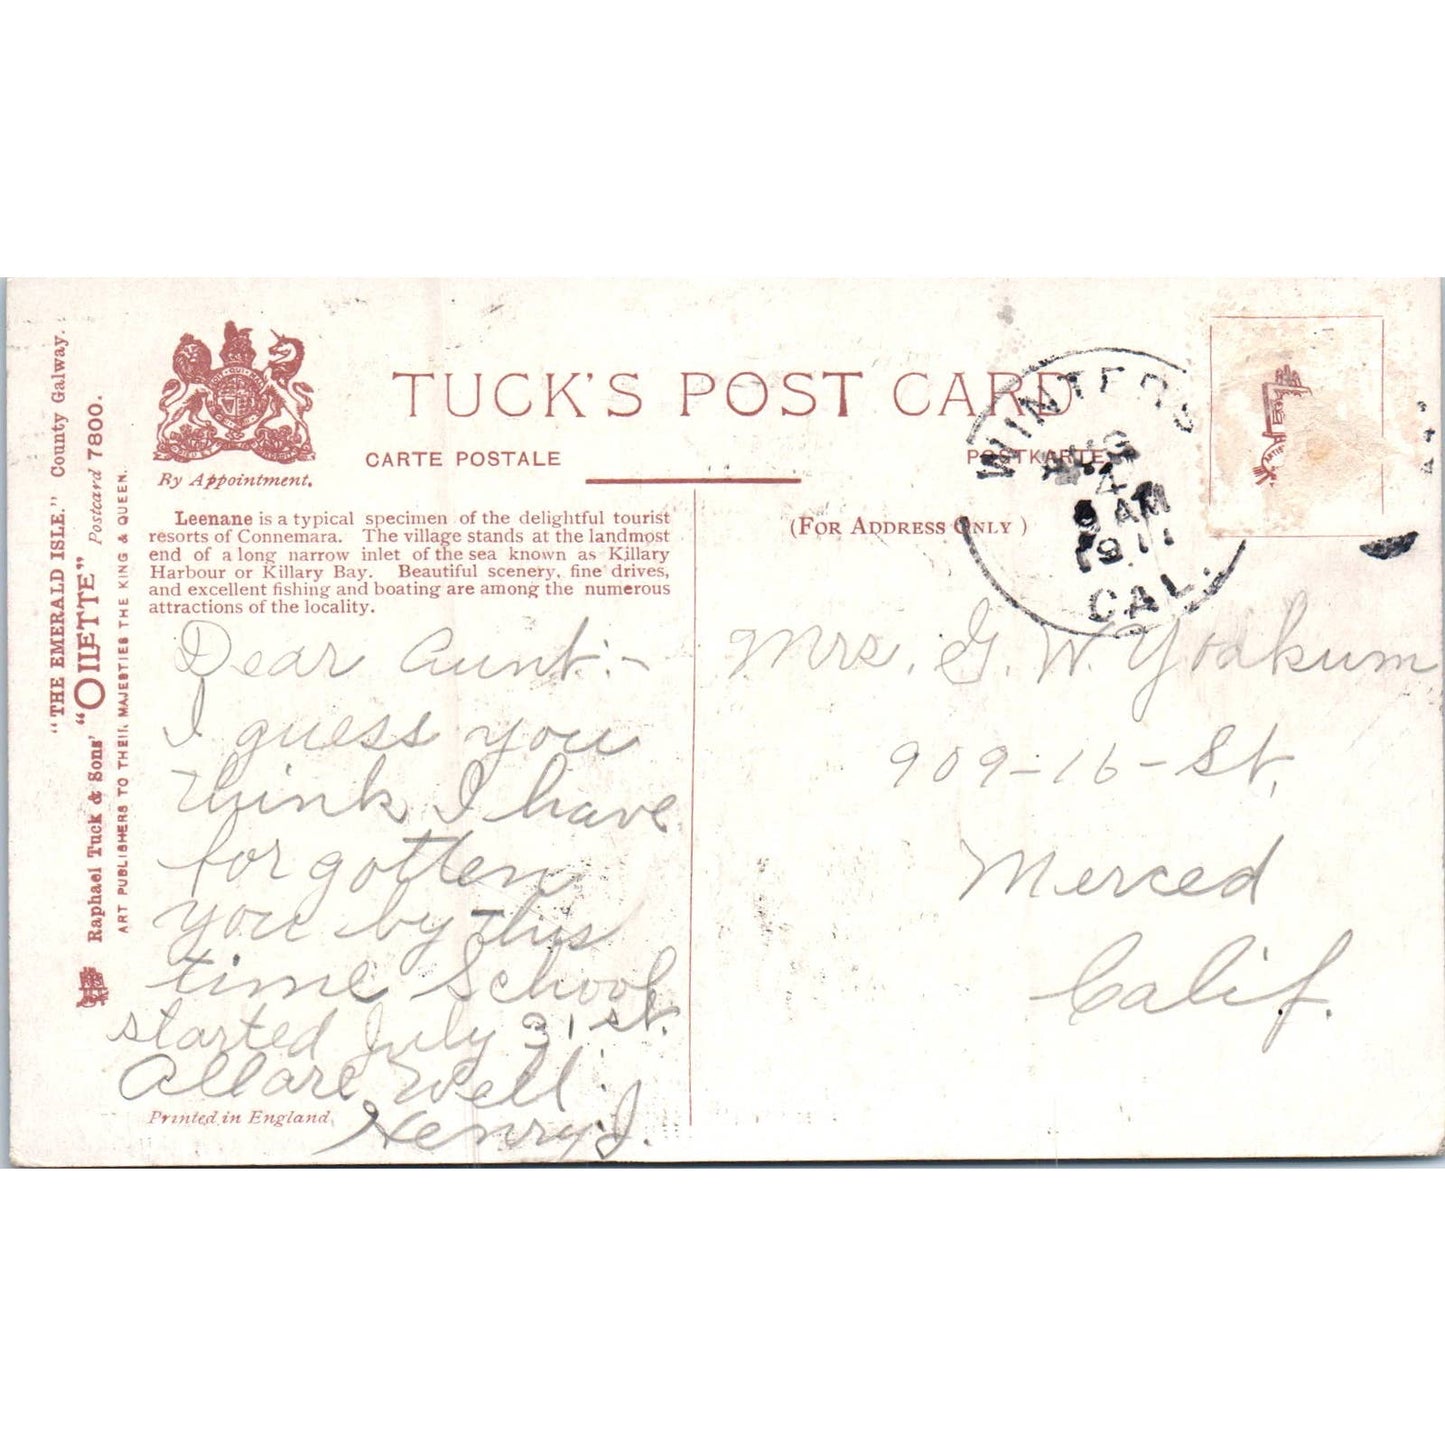 "THE EMERALD ISLE." County Galway.
Raphael Tuck & Sons' "OILETTE" Postcard 7800.
ART PUBLISHERS TO THEIR MAJESTIES THE KING & QUEEN.
By Appointment.
TUCK'S POST CARD
CARTE POSTALE
POSTKARTE
(FOR ADDRESS ONLY)
Leenane is a typical specimen of the delightful tourist
resorts of Connemara. The village stands at the landmost
end of a long narrow inlet of the sea known as Killary
Harbour or Killary Bay. Beautiful scenery, fine drives,
and excellent fishing and boating are among the numerous
attractions of the locality.
Dear Aunt:-
I guess you
think I have
forgotten
you by this
time School
started July 31st.
All are well
Henry J.
Printed in England.
WINTERS
AUG
4
8 AM
1911
CAL.
Mrs. G. W. Yoakum
909-16-St,
Merced
Calif.